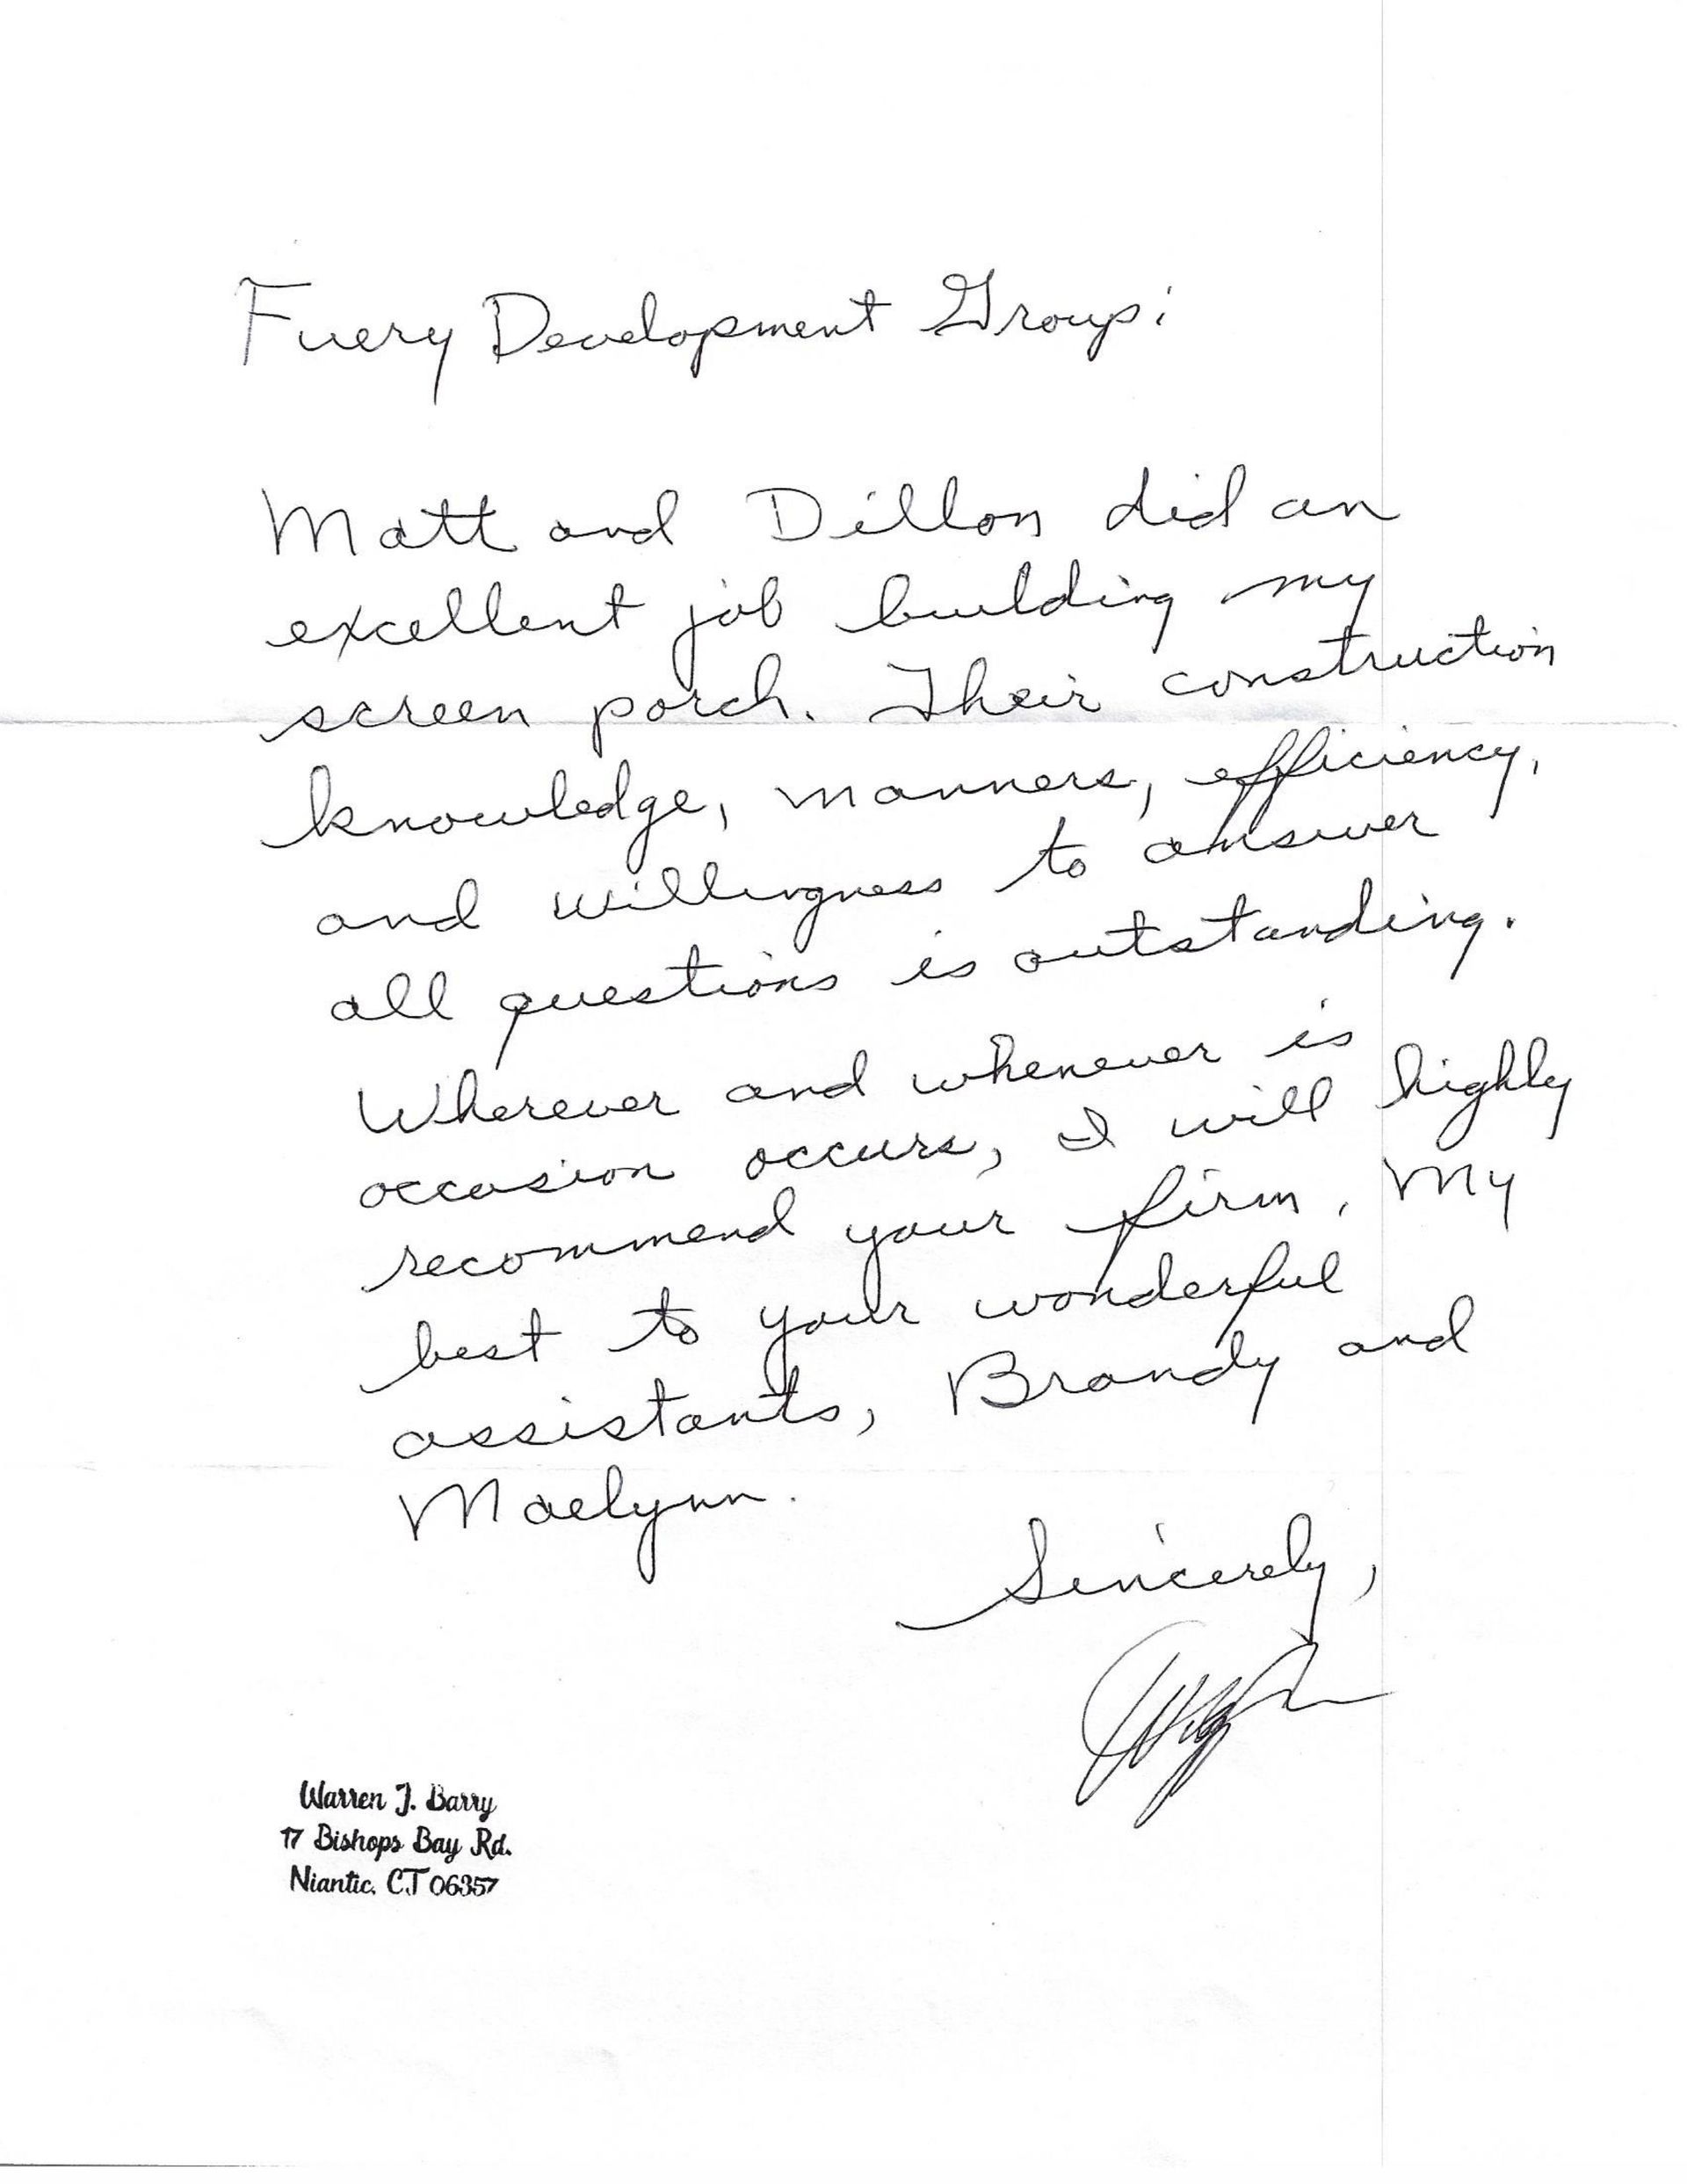 Fuery Development Group:
Matt and Dillon did an
excellent job building my
screen porch. Their construction
knowledge, manners, efficiency,
and willingness to answer
all questions is outstanding.
Wherever and whenever is
occasion occurs, I will highly
recommend your firm. My
best to your wonderful
assistants, Brandy and
Maelynn.
Sincerely,
Warren J. Barry
17 Bishops Bay Rd.
Niantic, CT 06357